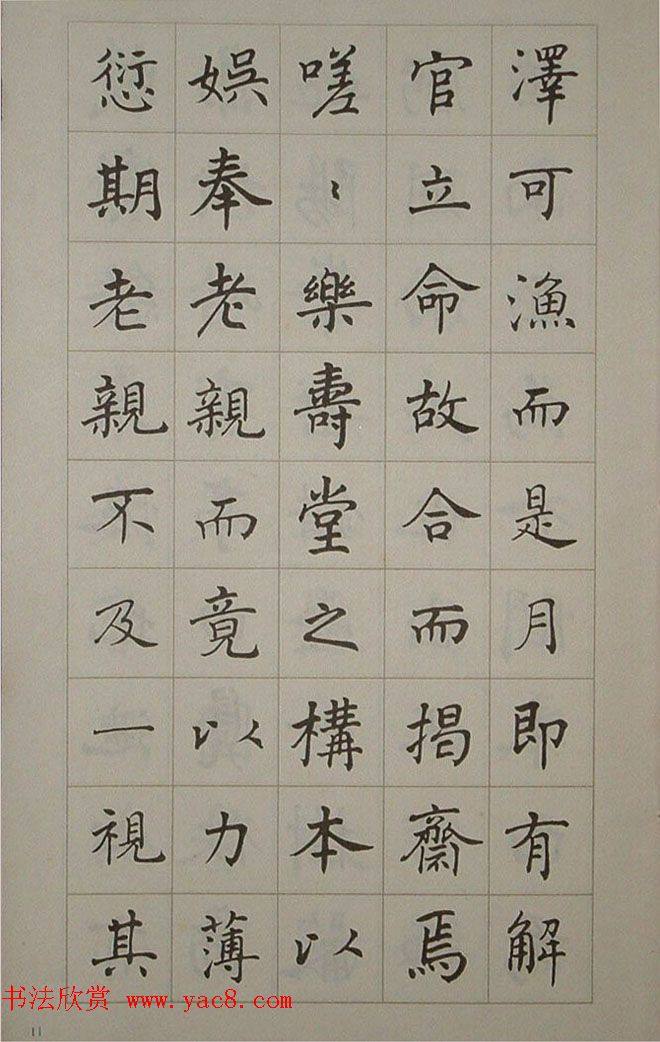 澤可漁而是月即有解
官立命故合而揭齋焉
嗟〻樂壽堂之構本以
娛奉老親而竟以力薄
愆期老親不及一視其
书法欣赏 www.yac8.com
11